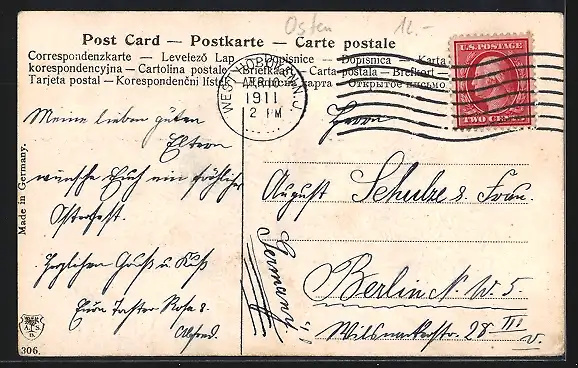 Osten 12.-
Post Card — Postkarte — Carte postale
Correspondenzkarte — Levelező Lap — Dopisnice — Dopisnica — Karta
korespondencyjna — Cartolina postale — Briefkaart — Carta postala — Brefkort —
Tarjeta postal — Korespondenční lístek карта — Открытое письмо
WEST HOBOKEN N.J.
APR 10
1911
2 PM
U.S. POSTAGE
TWO CENTS
Meine lieben guten
Eltern
wünsche Euch ein fröhliches
Osterfest.
Herzlichen Gruß u. Kuß
Eure Tochter Rosa &
Alfred.
Herrn
August Schulze & Frau.
Germany
Berlin N. W. 5.
Wilsnackerstr. 28 III
v.
Made in Germany.
306.